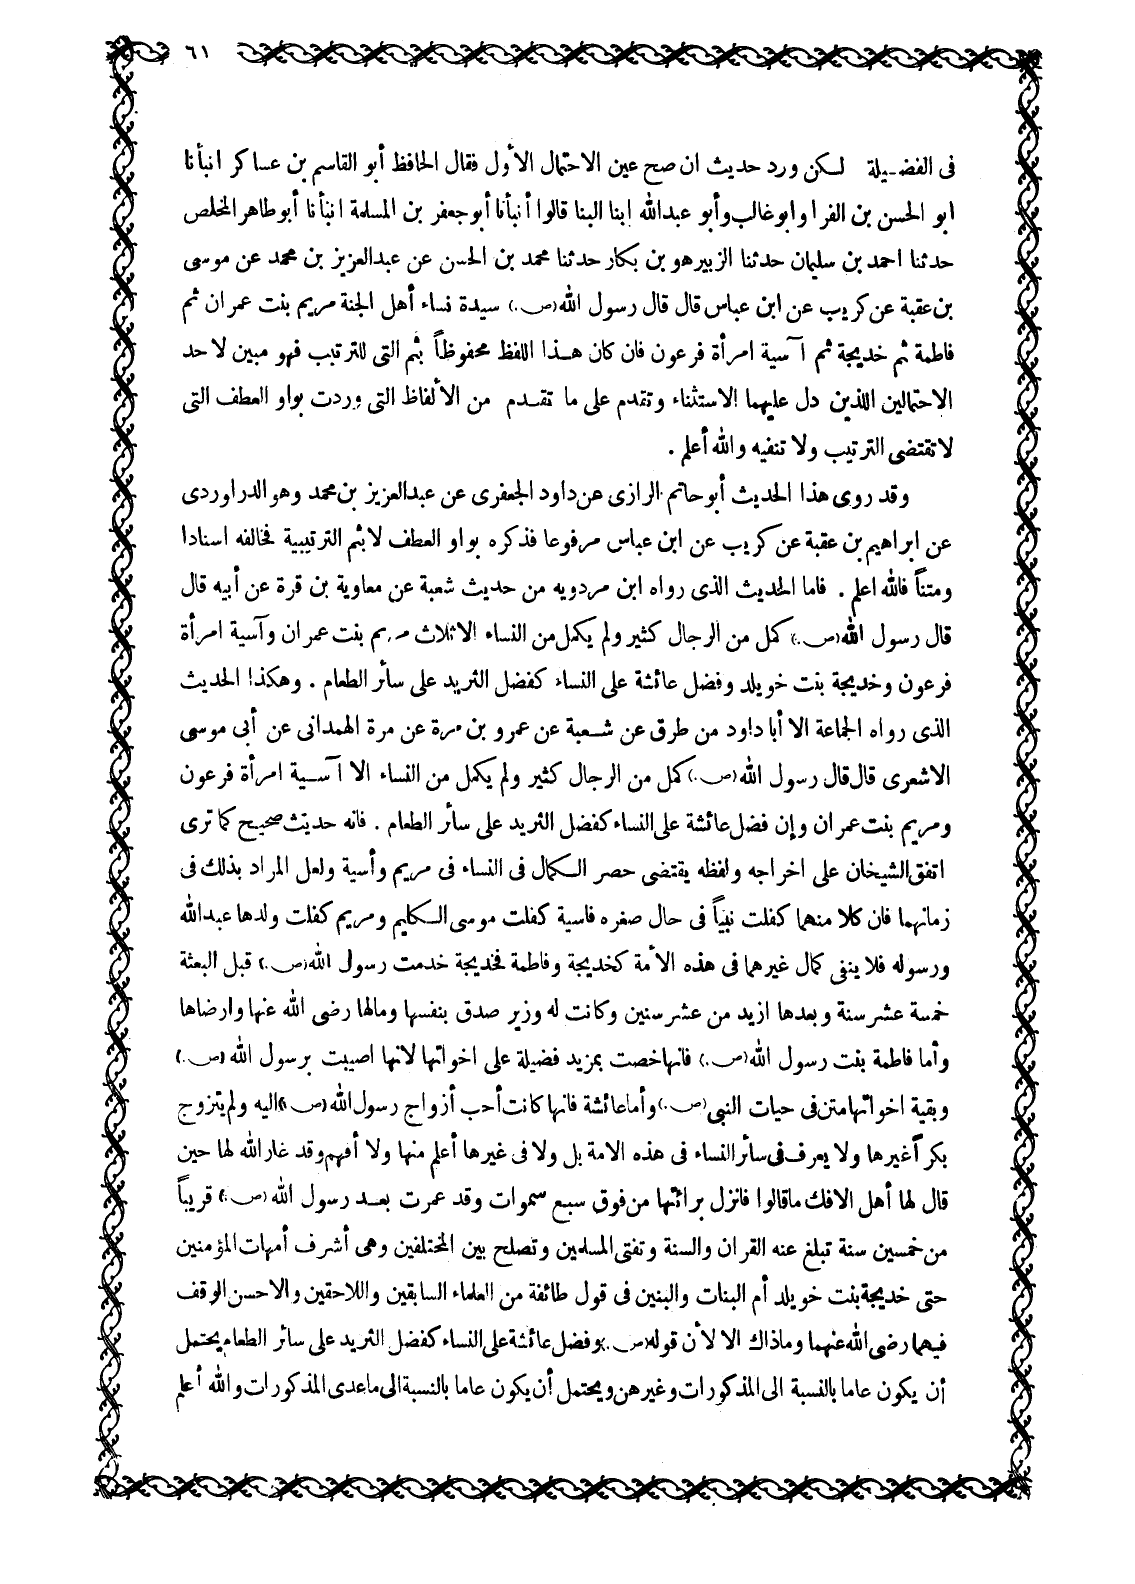 ٦١
فى الفضيلة لكن ورد حديث ان صح عين الاحتمال الأول فقال الحافظ أبو القاسم بن عساكر انبأنا
ابو الحسن بن الفرا وابو غالب وأبو عبدالله ابنا البنا قالوا أنبأنا أبو جعفر بن المسلمة انبأنا أبو طاهر المخلص
حدثنا احمد بن سليمان حدثنا الزبير هو بن بكار حدثنا محمد بن الحسن عن عبدالعزيز بن محمد عن موسى
بن عقبة عن كريب عن ابن عباس قال قال رسول الله (ص.) سيدة نساء أهل الجنة مريم بنت عمران ثم
فاطمة ثم خديجة ثم آسية امرأة فرعون فان كان هذا اللفظ محفوظاً بثم التى للترتيب فهو مبين لاحد
الاحتمالين اللذين دل عليهما الاستثناء وتقدم على ما تقدم من الألفاظ التى وردت بواو العطف التى
لا تقتضى الترتيب ولا تنفيه والله أعلم .
وقد روى هذا الحديث أبو حاتم الرازى عن داود الجعفرى عن عبدالعزيز بن محمد وهو الدراوردى
عن ابراهيم بن عقبة عن كريب عن ابن عباس مرفوعا فذكره بواو العطف لا بثم الترتيبية فخالفه اسنادا
ومتناً فالله اعلم . فاما الحديث الذى رواه ابن مردويه من حديث شعبة عن معاوية بن قرة عن أبيه قال
قال رسول الله (ص.) كمل من الرجال كثير ولم يكمل من النساء الا ثلاث مريم بنت عمران وآسية امرأة
فرعون وخديجة بنت خويلد وفضل عائشة على النساء كفضل الثريد على سائر الطعام . وهكذا الحديث
الذى رواه الجماعة الا أبا داود من طرق عن شعبة عن عمرو بن مرة عن مرة الهمدانى عن أبى موسى
الاشعرى قال قال رسول الله (ص.) كمل من الرجال كثير ولم يكمل من النساء الا آسية امرأة فرعون
ومريم بنت عمران وإن فضل عائشة على النساء كفضل الثريد على سائر الطعام . فانه حديث صحيح كما ترى
اتفق الشيخان على اخراجه ولفظه يقتضى حصر الكمال فى النساء فى مريم وأسية ولعل المراد بذلك فى
زمانهما فان كلا منهما كفلت نبياً فى حال صغره فاسية كفلت موسى الكليم ومريم كفلت ولدها عبدالله
ورسوله فلا ينفى كمال غيرهما فى هذه الأمة كخديجة وفاطمة فخديجة خدمت رسول الله (ص.) قبل البعثة
خمسة عشر سنة وبعدها ازيد من عشر سنين وكانت له وزير صدق بنفسها ومالها رضى الله عنها وارضاها
وأما فاطمة بنت رسول الله (ص.) فانها خصت بمزيد فضيلة على اخواتها لانها اصيبت برسول الله (ص.)
وبقية اخواتها متن فى حيات النبى (ص.) وأما عائشة فانها كانت أحب أزواج رسول الله (ص.) اليه ولم يتزوج
بكراً غيرها ولا يعرف فى سائر النساء فى هذه الامة بل ولا فى غيرها أعلم منها ولا أفهم وقد غار الله لها حين
قال لها أهل الافك ما قالوا فانزل برائتها من فوق سبع سموات وقد عمرت بعد رسول الله (ص.) قريباً
من خمسين سنة تبلغ عنه القران والسنة وتفتى المسلمين وتصلح بين المختلفين وهى أشرف أمهات المؤمنين
حتى خديجة بنت خويلد أم البنات والبنين فى قول طائفة من العلماء السابقين واللاحقين والاحسن الوقف
فيهما رضى الله عنهما وماذاك الا لأن قوله (ص.) وفضل عائشة على النساء كفضل الثريد على سائر الطعام يحتمل
أن يكون عاما بالنسبة الى المذكورات وغيرهن ويحتمل أن يكون عاما بالنسبة الى ماعدى المذكورات والله أعلم